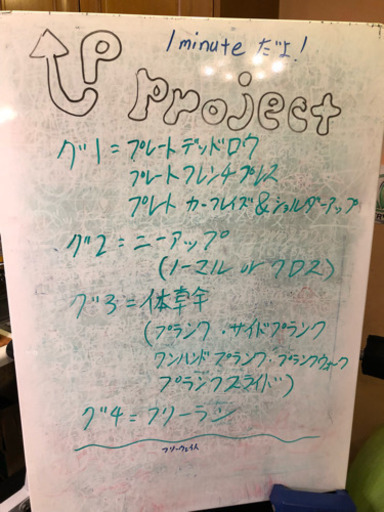 UP
project
1minuteだよ!
グ1=プレートデッドロウ
プレートフレンチプレス
プレート カーフレイズ&ショルダーアップ
グ2=ニーアップ
(ノーマル or クロス)
グ3=体幹
(プランク・サイドプランク
ワンハンドプランク・プランクウォーク
プランクスライド)
グ4=フリーラン